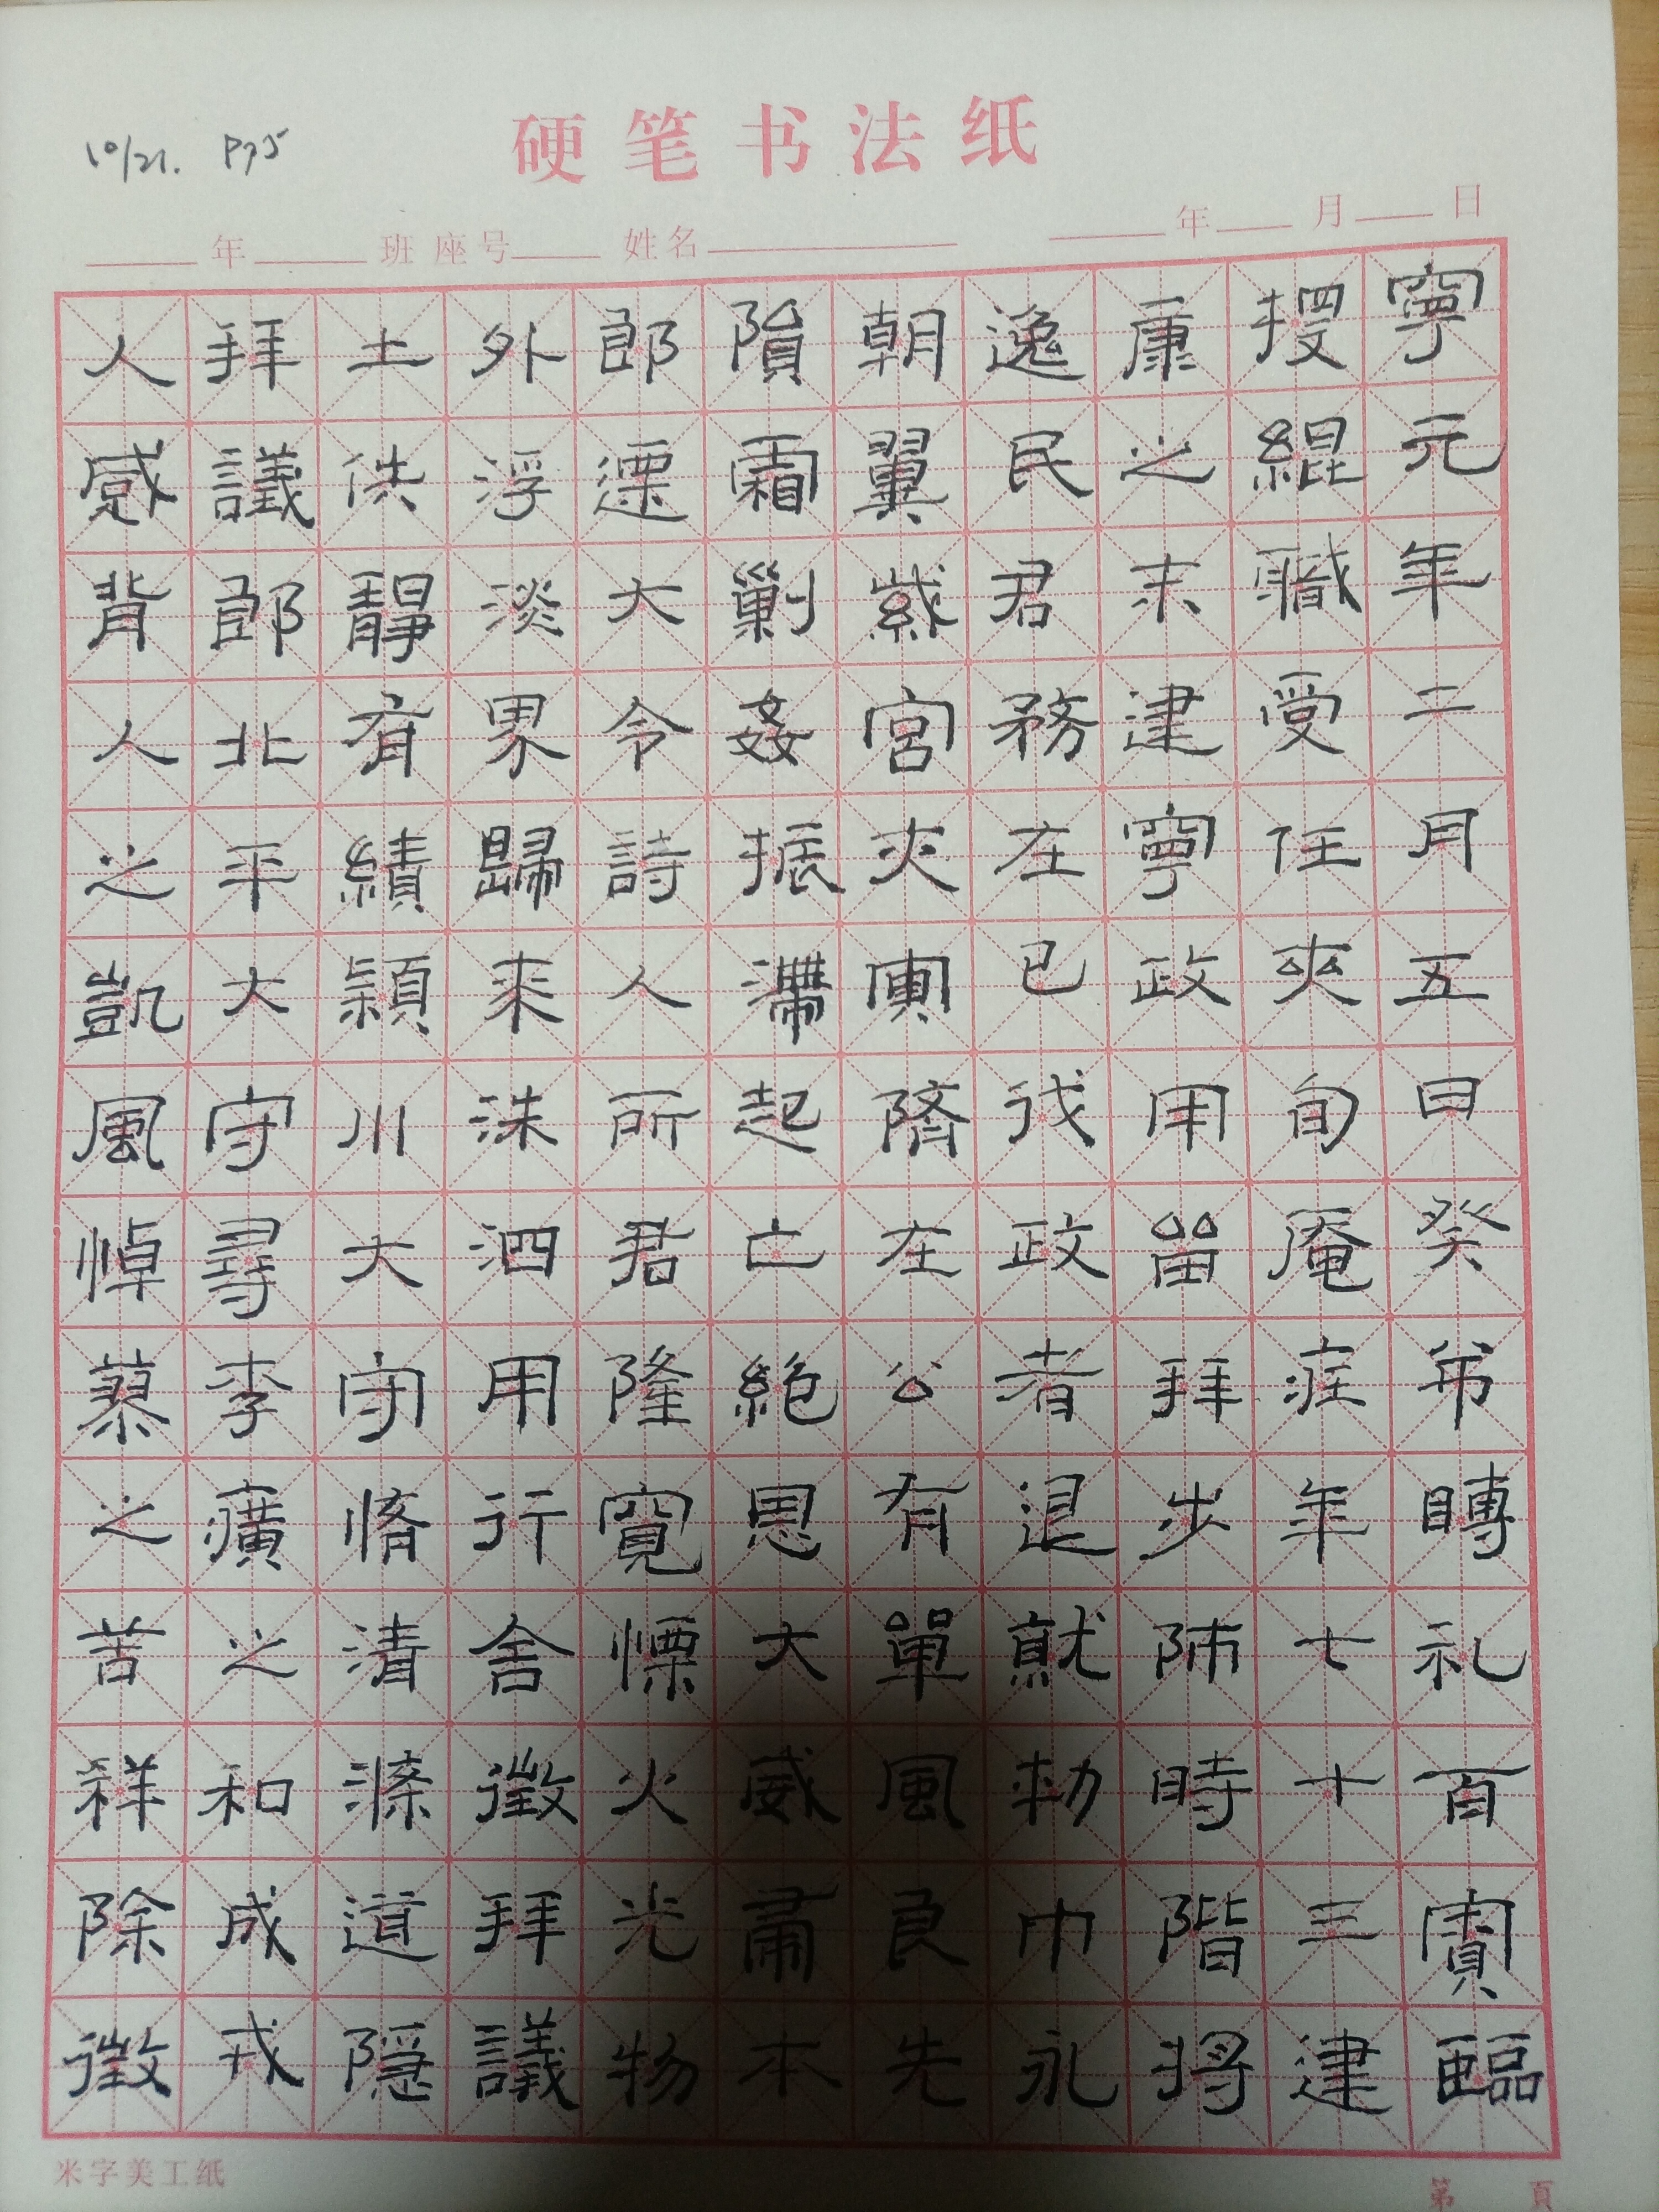 10/21. P75
硬笔书法纸
年 班 座号 姓名 年 月 日
寧元年二月五日癸弔轉礼百賓臨
授緄職受任夾旬庵疟年七十三建
康之末建寧政用畱拜步陟時階将
逸民君務在已伐政者退就勑巾永
朝翼紫宮夾寅隮在公有單風良先
隕霜剿姦振滯起亡絶恩大威肅本
郎遷大令詩人所君隆寬慄火光物
外浮淡界歸来洙泗用行舍徵拜議
土供靜有績潁川大守脩清滌道隱
拜議郎北平大守尋李癀之和成戎
人感背人之凱風悼蓼之苦祥除徵
米字美工纸
第 頁